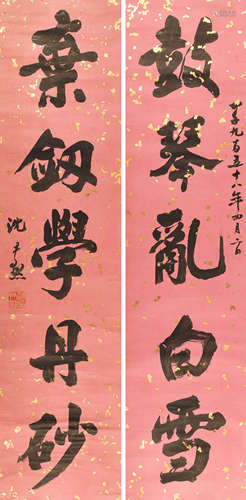 鼓琴亂白雪
一千九百五十八年四月六日
棄劔學丹砂
沈尹默